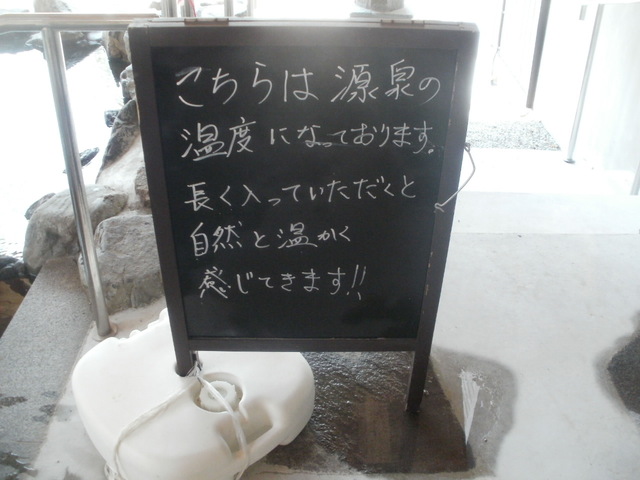 こちらは源泉の
温度になっております。
長く入っていただくと
自然と温かく
感じてきます!!